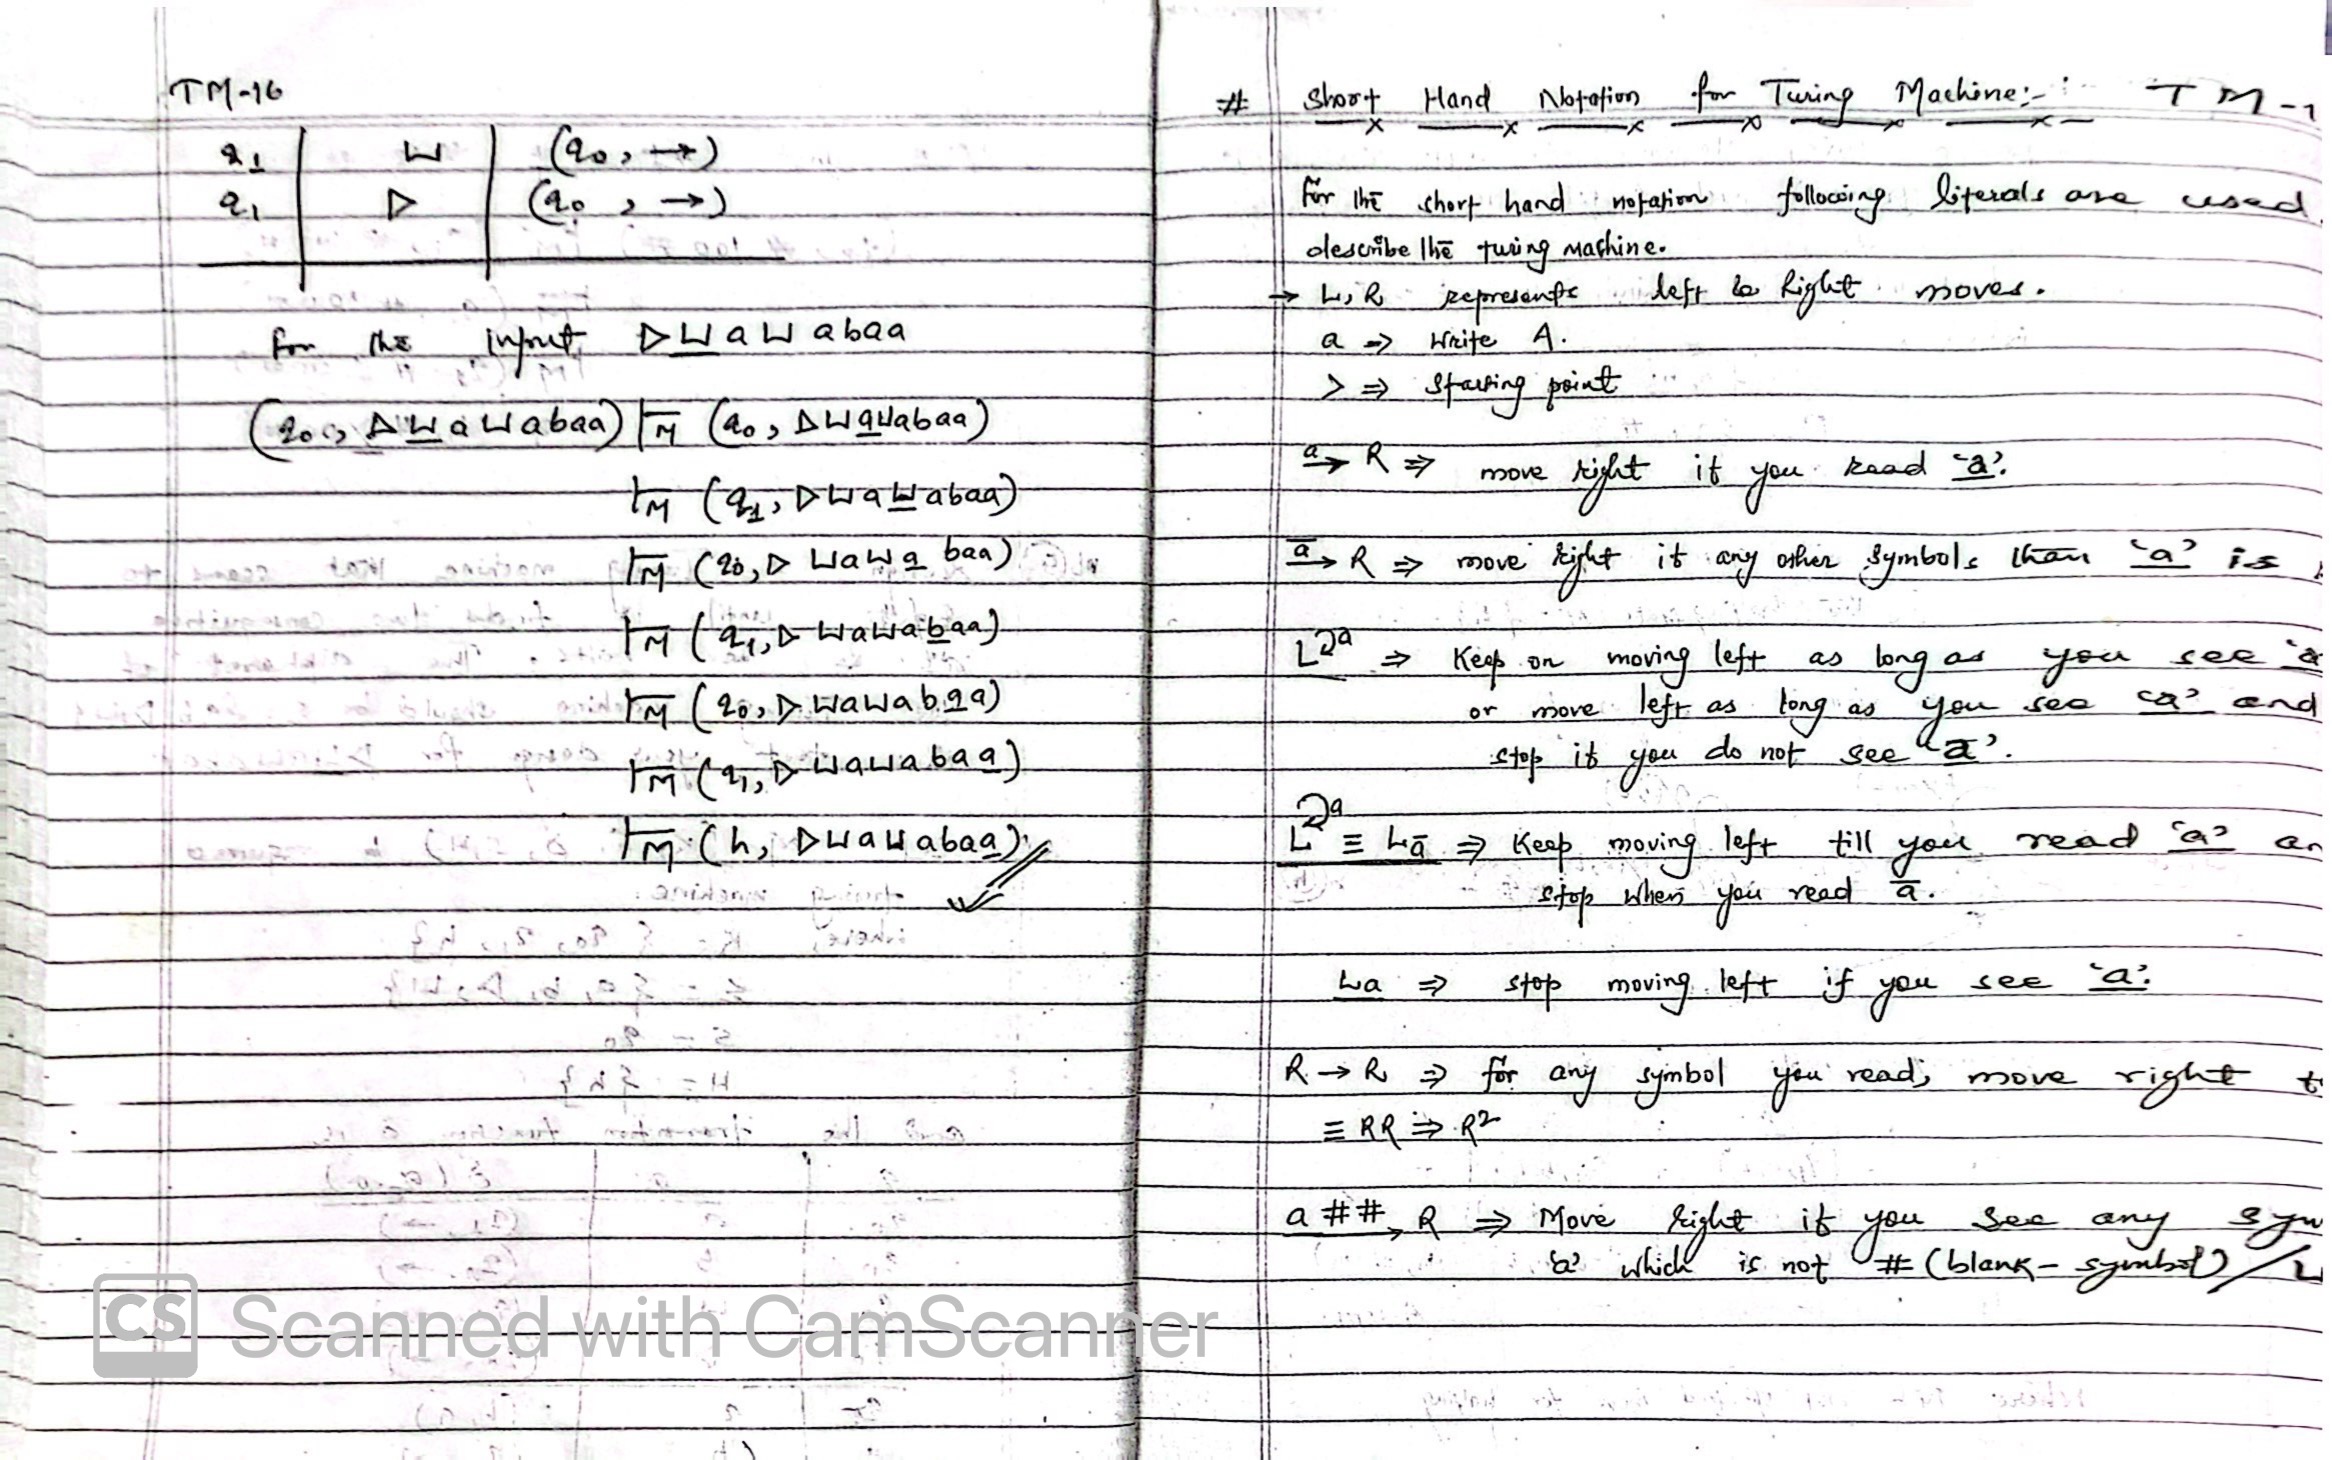 TM-16
q1 | ⊔ | (q0, →)
q1 | ▷ | (q0, →)
for the input ▷⊔a⊔abaa
(q0, ▷⊔a⊔abaa) ⊢M (q0, ▷⊔a⊔abaa)
⊢M (q1, ▷⊔a⊔abaa)
⊢M (q0, ▷⊔a⊔abaa)
⊢M (q1, ▷⊔a⊔abaa)
⊢M (q0, ▷⊔a⊔abaa)
⊢M (q1, ▷⊔a⊔abaa)
⊢M (h, ▷⊔a⊔abaa)
# Short Hand Notation for Turing Machine:- TM-1
For the short hand notation following literals are used
describe the turing mathine.
→ L, R represents left & Right moves.
a ⇒ Write A.
> ⇒ Starting point
a→ R ⇒ move right if you read 'a'.
a̅→ R ⇒ move right if any other symbols than 'a' is
L⊃a ⇒ Keep on moving left as long as you see 'a
or move left as long as you see 'a' and
stop if you do not see 'a̅'.
L⊃a ≡ La̅ ⇒ Keep moving left till you read 'a' an
stop when you read a̅.
La ⇒ stop moving left if you see 'a'.
R → R ⇒ for any symbol you read, move right t
≡ RR ⇒ R²
a ## → R ⇒ Move Right if you see any sym
'a' which is not # (blank-symbol)/⊔
CS Scanned with CamScanner